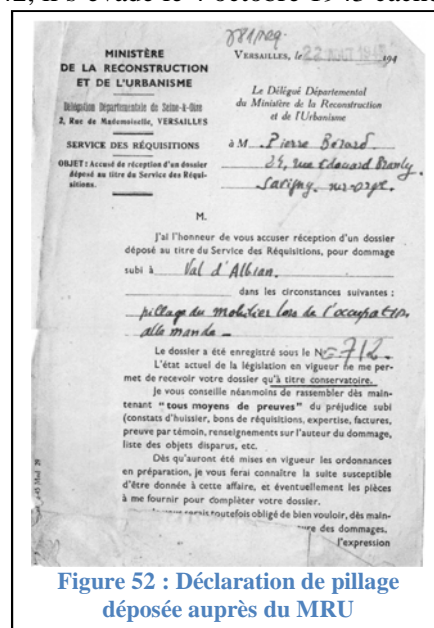 il s'évade le 4 octobre 1943 caché
MINISTÈRE
DE LA RECONSTRUCTION
ET DE L'URBANISME
Délégation Départementale de Seine-&-Oise
2, Rue de Mademoiselle, VERSAILLES
SERVICE DES RÉQUISITIONS
OBJET : Accusé de réception d'un dossier
déposé au titre du Service des Réqui-
sitions.
VERSAILLES, le 22 194
Le Délégué Départemental
du Ministère de la Reconstruction
et de l'Urbanisme
à M Pierre Bérard
rue Edouard Branly
Savigny, sur-orge.
M.
J'ai l'honneur de vous accuser réception d'un dossier
déposé au titre du Service des Réquisitions, pour dommage
subi à Val d'Albian.
dans les circonstances suivantes :
pillage du mobilier lors de l'occupation
allemande -
Le dossier a été enregistré sous le N° 712.
L'état actuel de la législation en vigueur ne me per-
met de recevoir votre dossier qu'à titre conservatoire.
Je vous conseille néanmoins de rassembler dès main-
tenant "tous moyens de preuves" du préjudice subi
(constats d'huissier, bons de réquisitions, expertise, factures,
preuve par témoin, renseignements sur l'auteur du dommage,
liste des objets disparus, etc.
Dès qu'auront été mises en vigueur les ordonnances
en préparation, je vous ferai connaître la suite susceptible
d'être donnée à cette affaire, et éventuellement les pièces
à me fournir pour compléter votre dossier.
toutefois obligé de bien vouloir, dès main-
des dommages.
l'expression
Figure 52 : Déclaration de pillage
déposée auprès du MRU